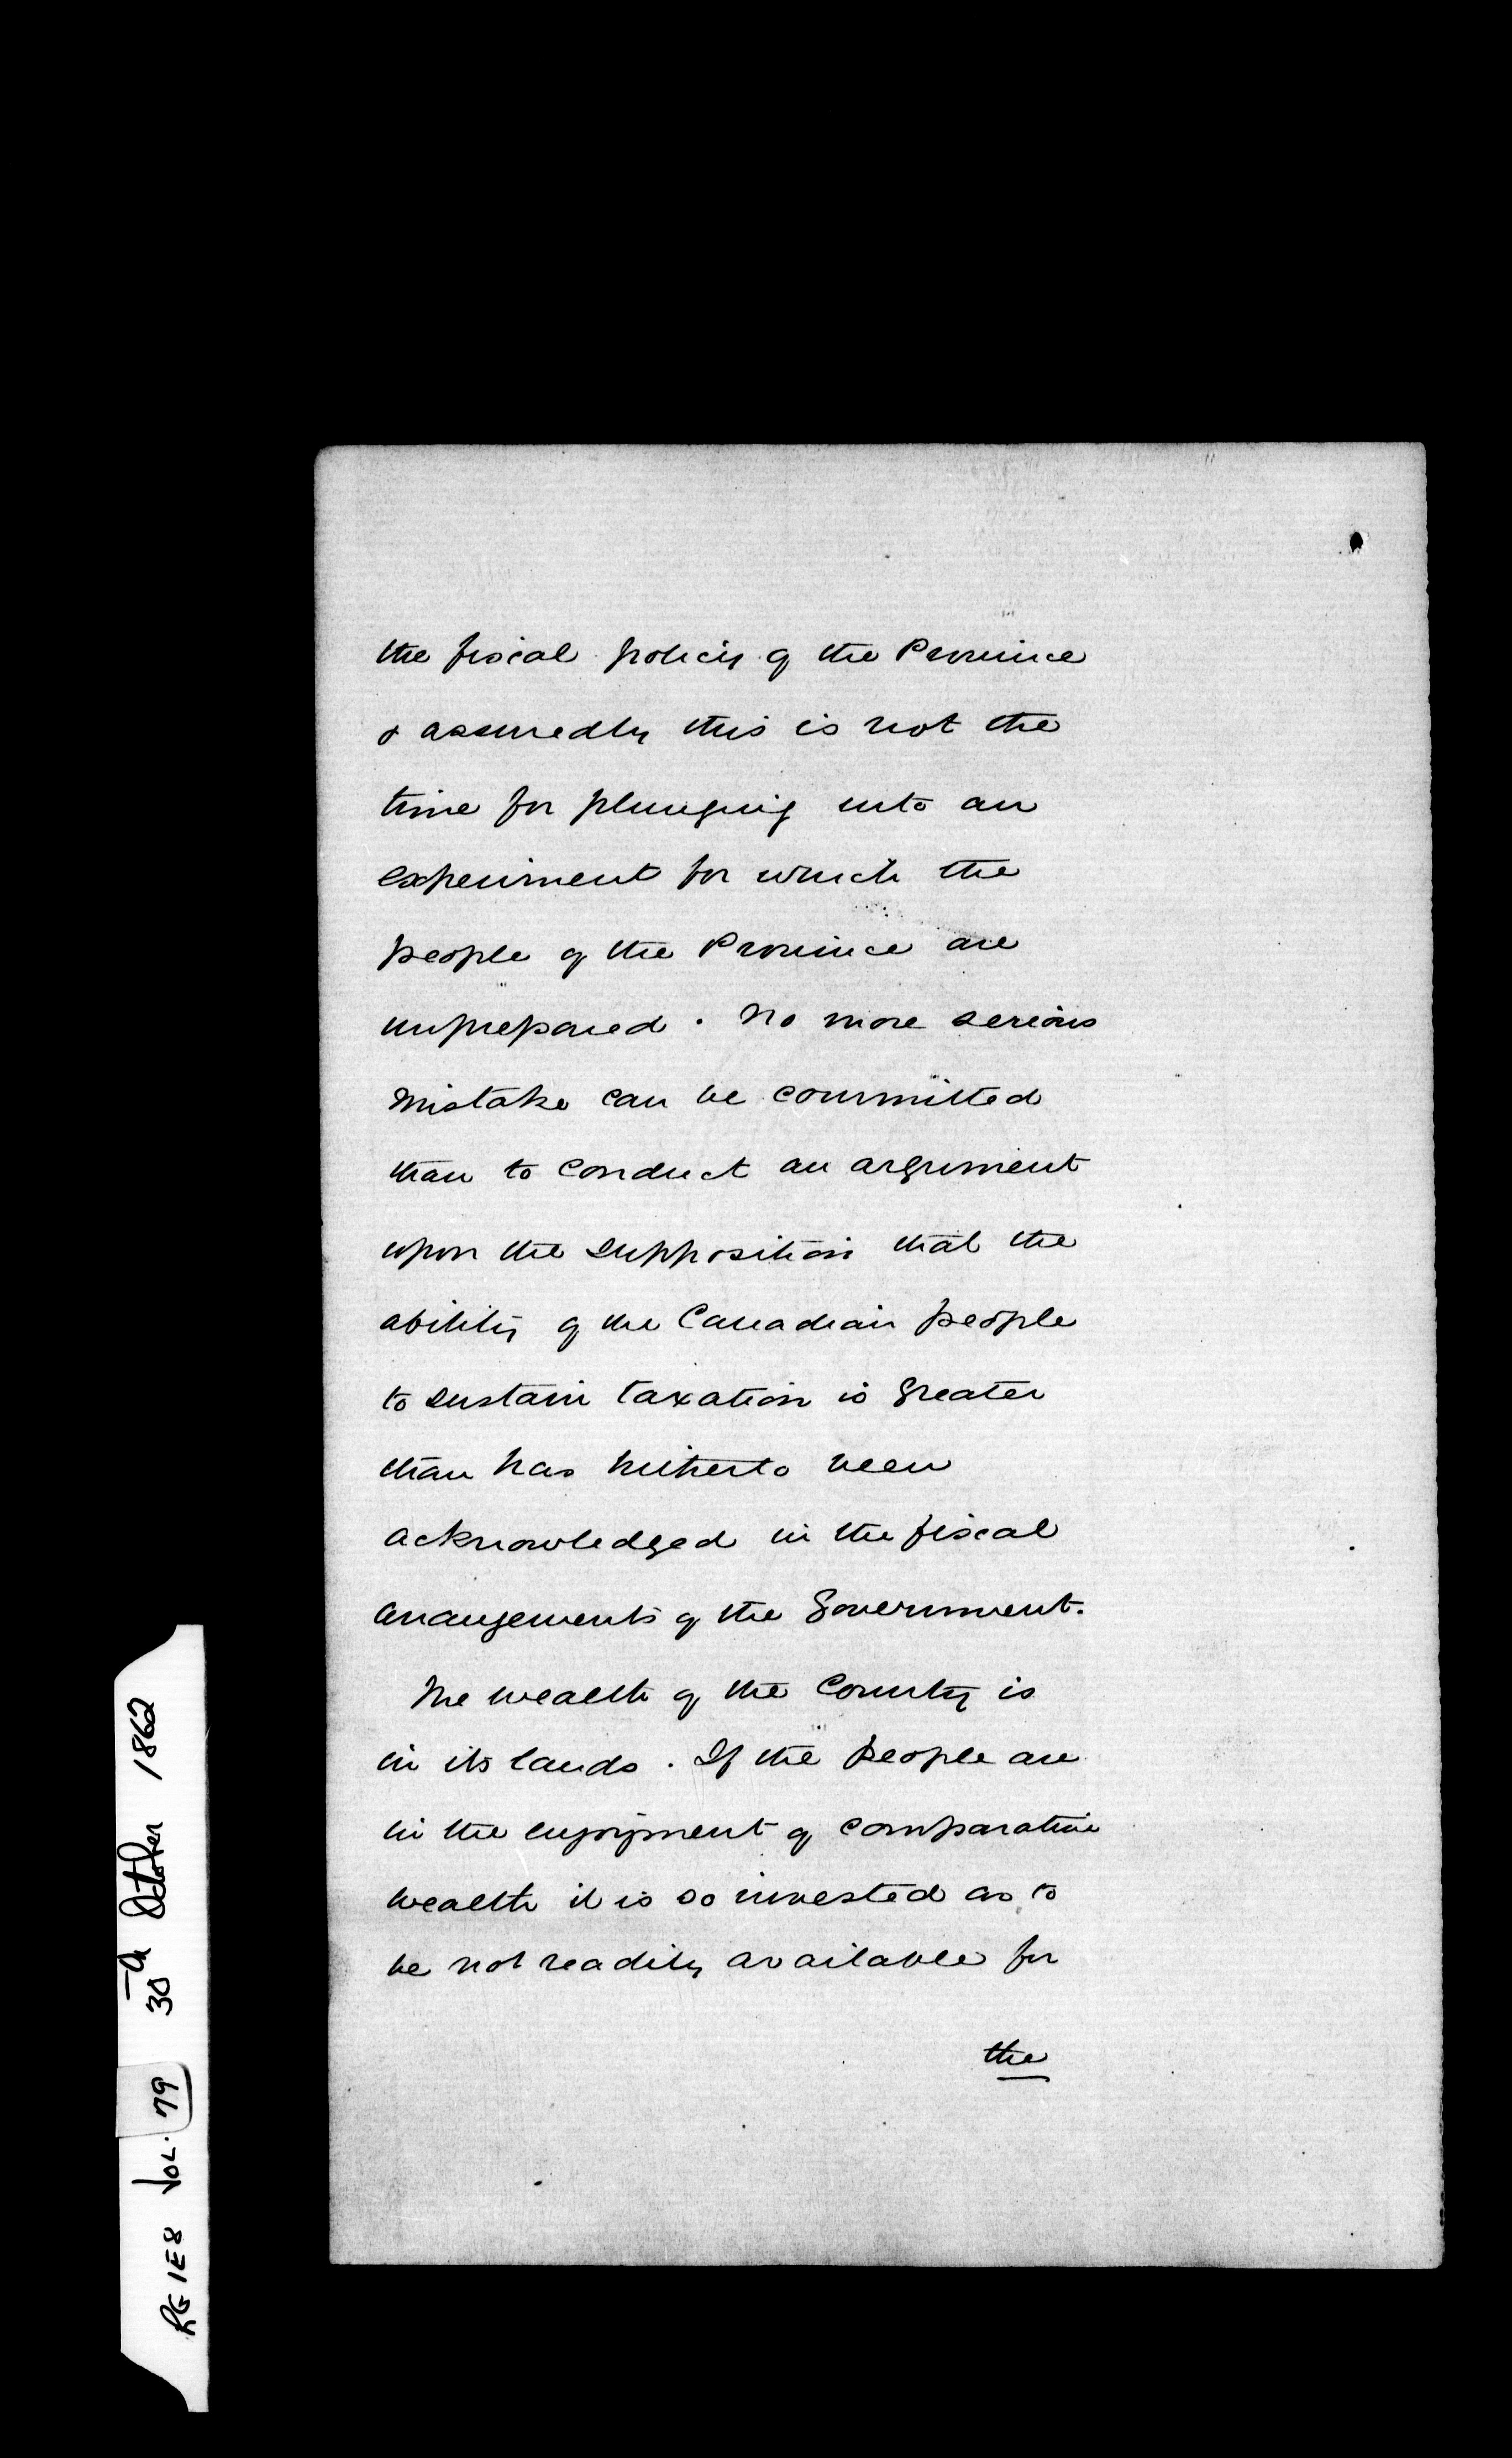 the fiscal policy of the Province
& assuredly this is not the
time for plunging into an
experiment for which the
people of the Province are
unprepared. No more serious
mistake can be committed
than to conduct an argument
upon the supposition that the
ability of the Canadian people
to sustain taxation is greater
than has hitherto been
acknowledged in the fiscal
arrangements of the Government.
The wealth of the Country is
in its lands. If the people are
in the enjoyment of comparative
wealth it is so invested as to
be not readily available for
the
RG 1E8 VOL. 79 30th October 1862